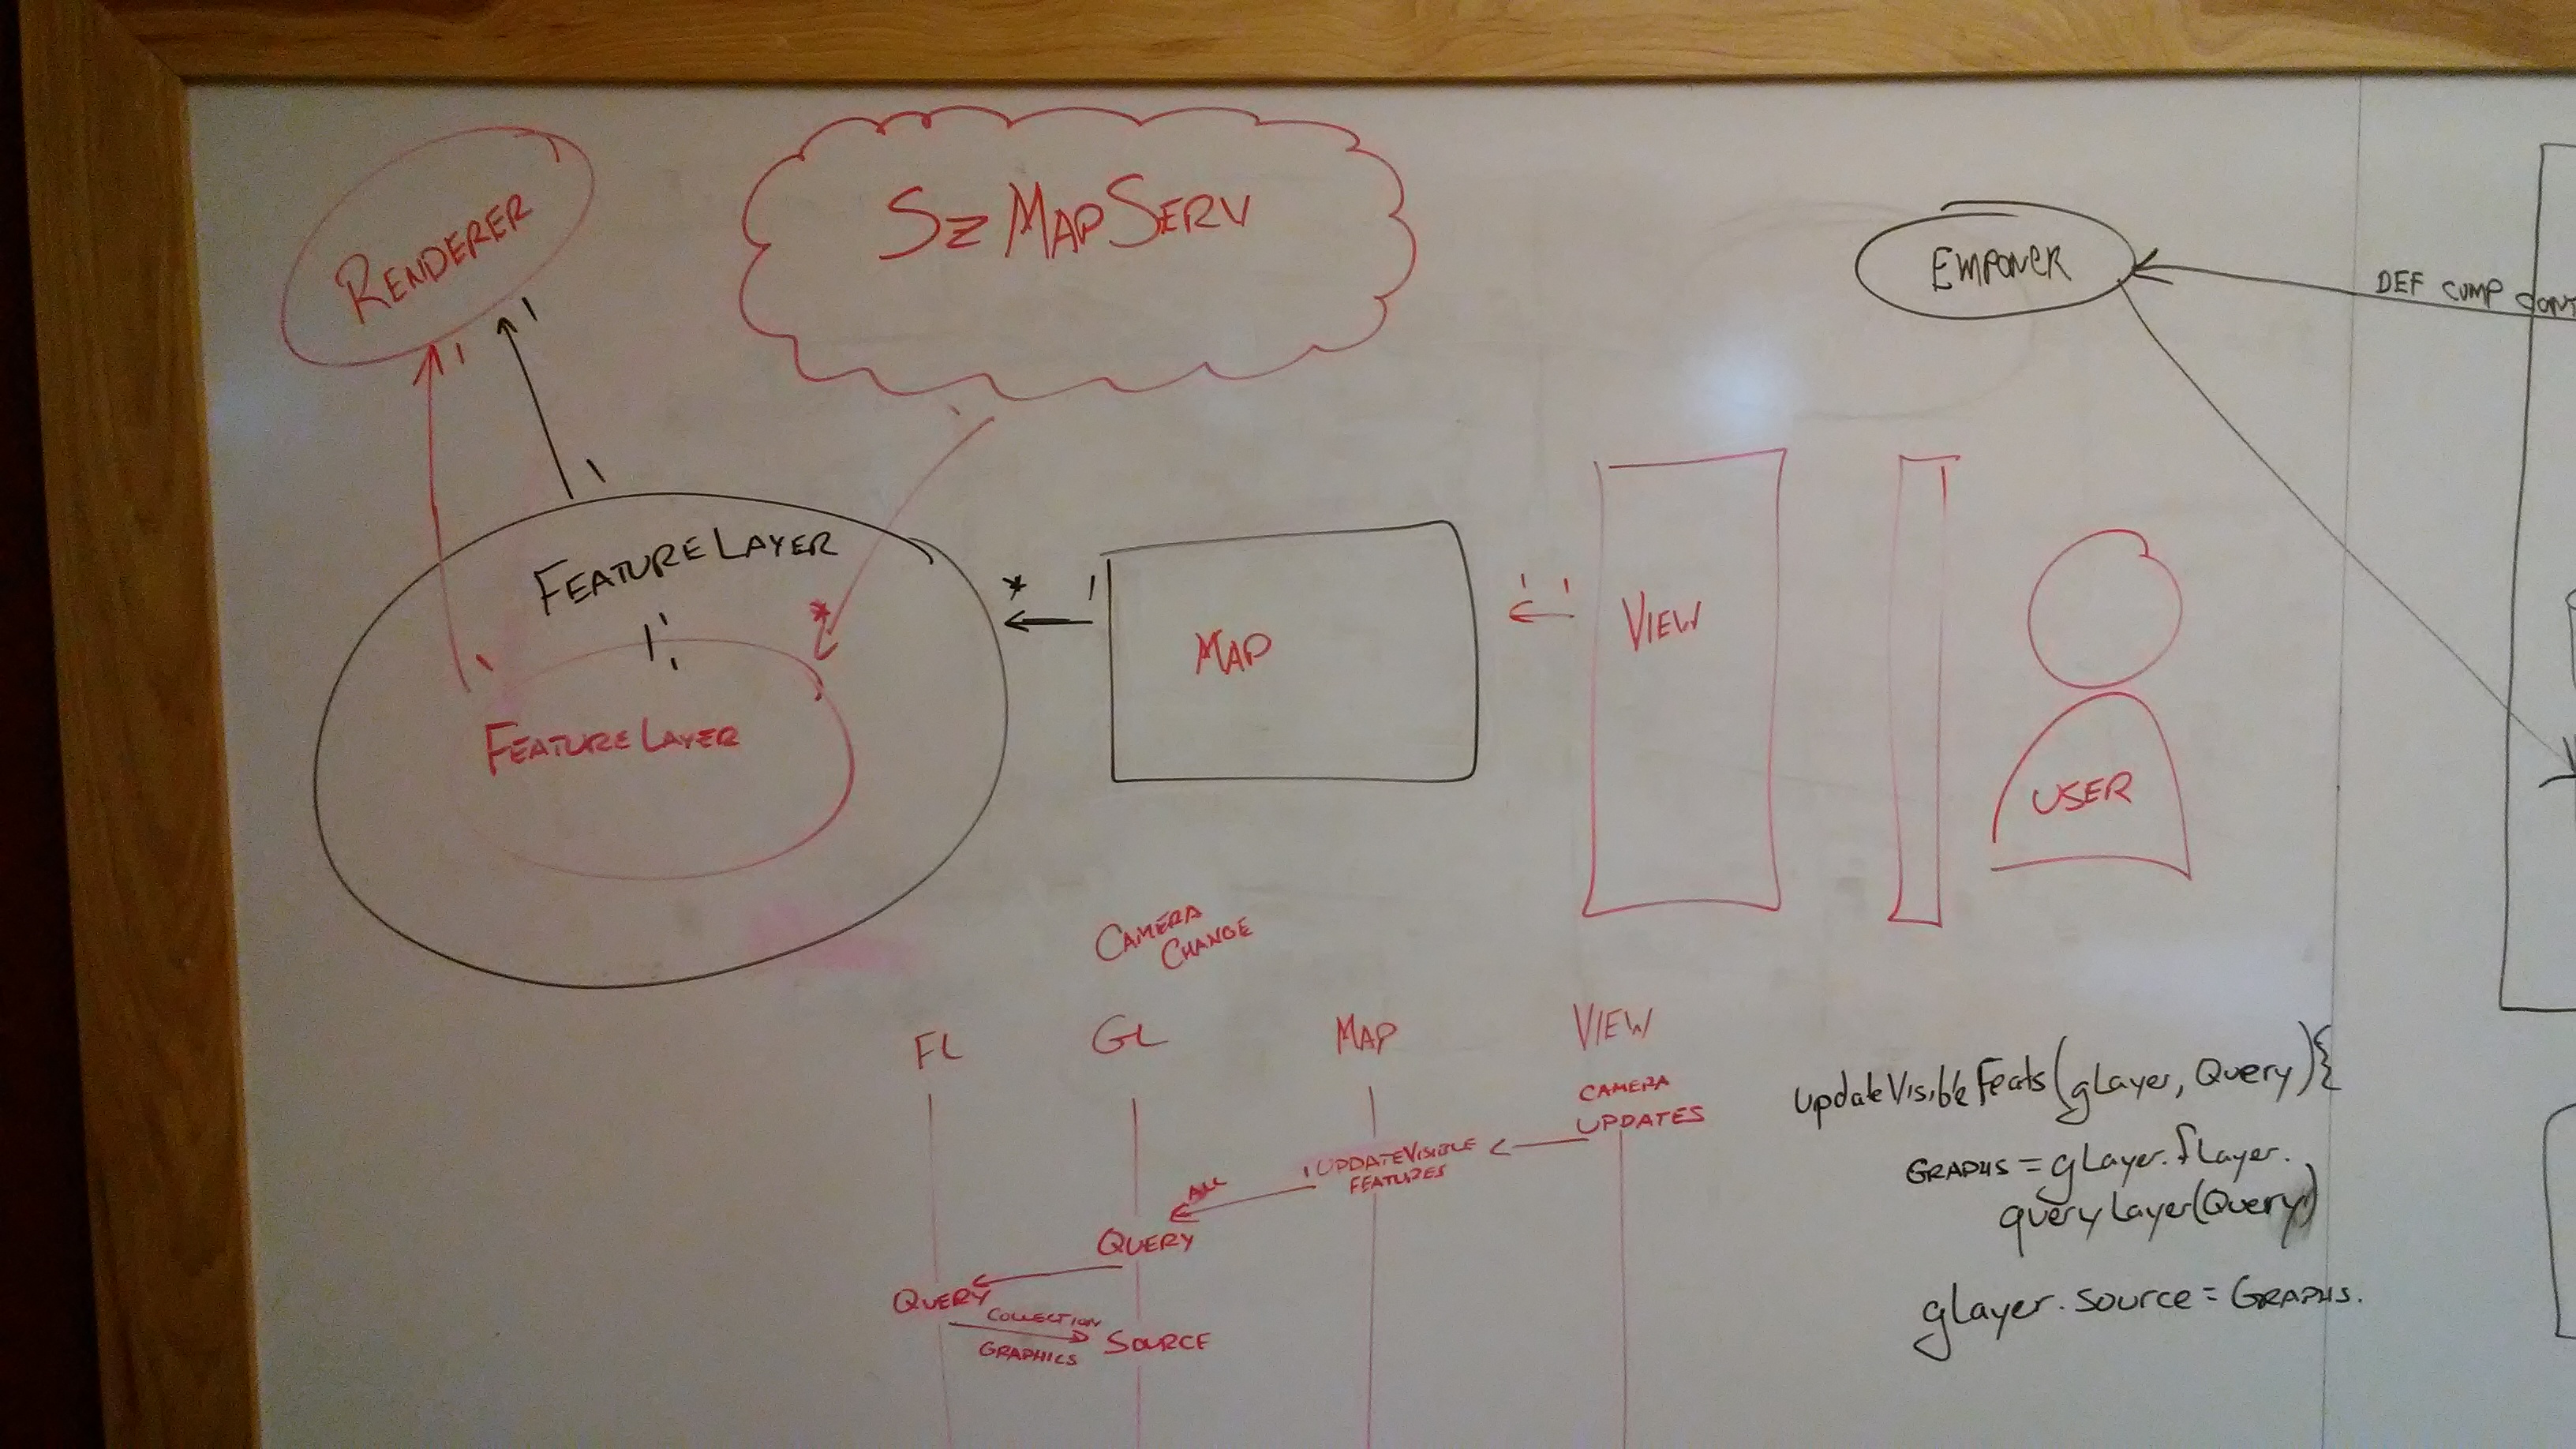 RENDERER
Sz MAPSERV
EMPONER
DEF COMP CONT
1
1
1
FEATURE LAYER
1
1
1
*
FEATURE LAYER
*
1
MAP
1 1
VIEW
USER
CAMERA
CHANGE
FL
GL
MAP
VIEW
CAMERA
UPDATES
UPDATEVISIBLE
FEATURES
ALL
QUERY
QUERY
COLLECTION
GRAPHICS
SOURCE
UpdateVisibleFeats(gLayer, Query){
GRAPHS = gLayer.fLayer.
queryLayer(Query)
gLayer.source = GRAPHS.